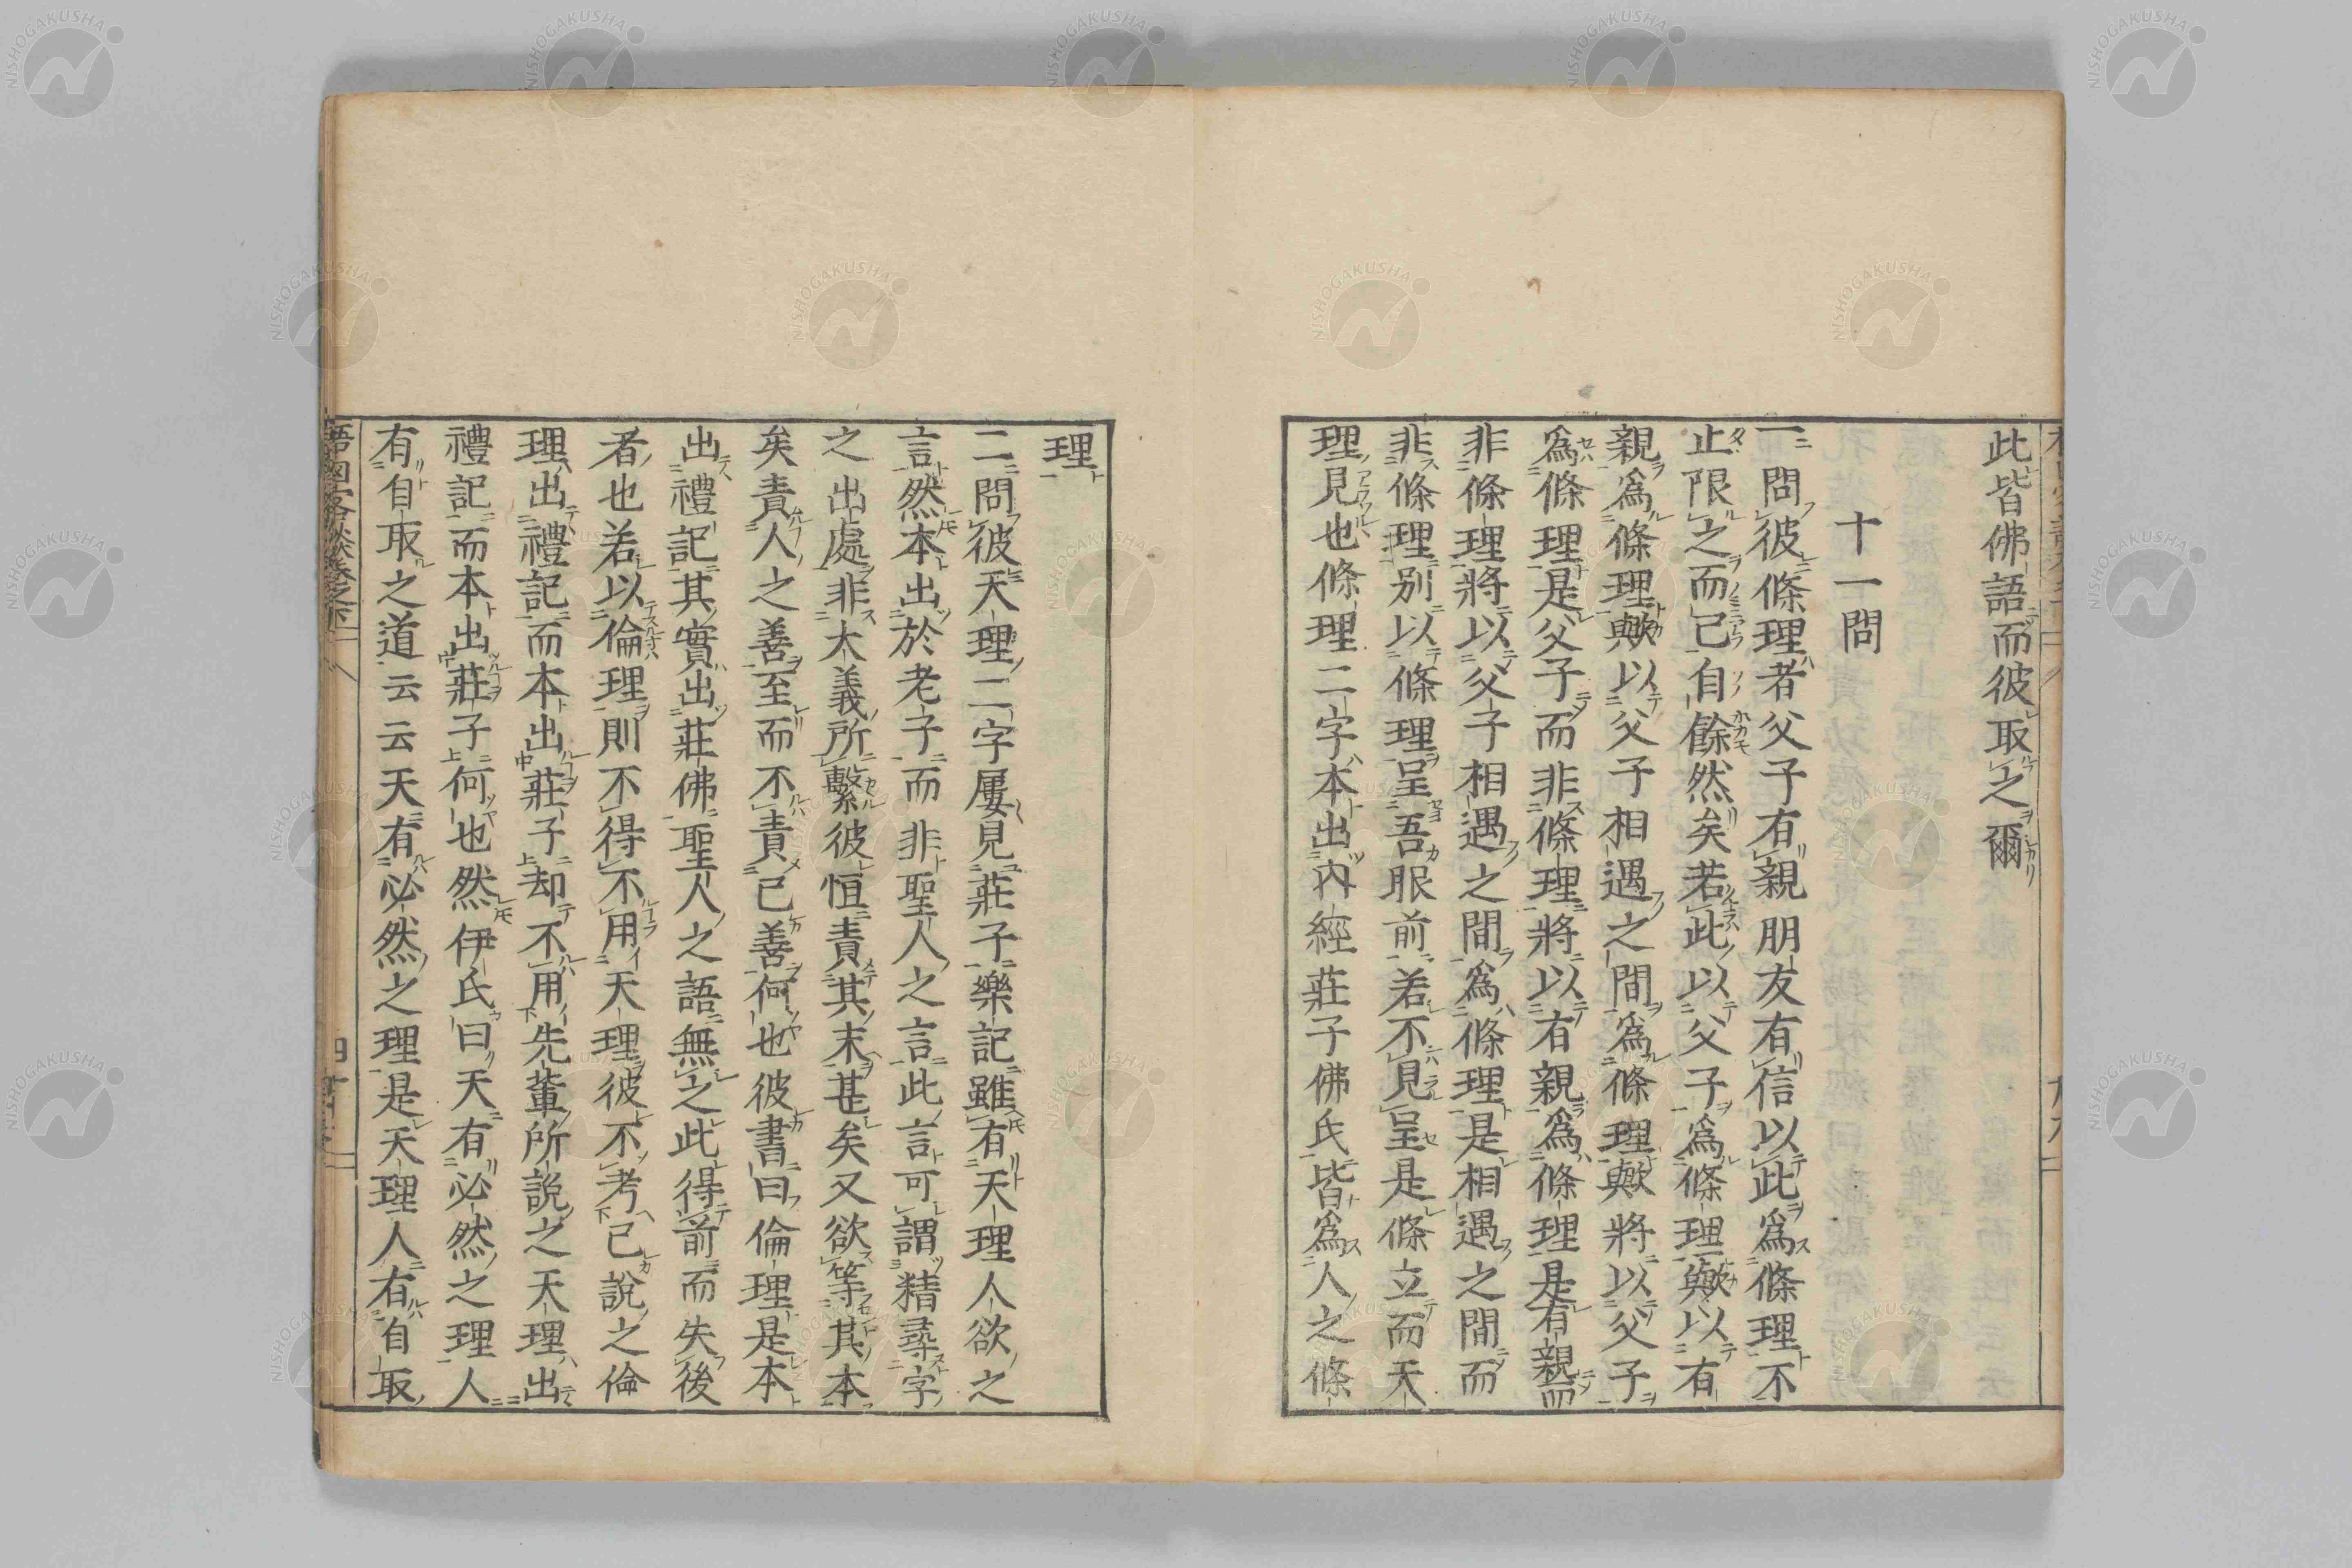 此皆佛語而彼取之爾
十一問
一問彼條理者父子有親朋友有信以此爲條理不
止限之而已自餘然矣若此以父子爲條理歟以有
親爲條理歟以父子相遇之間爲條理歟將以父子
爲條理是父子而非條理將以有親爲條理是有親而
非條理將以父子相遇之間爲條理是相遇之間而
非條理別以條理呈吾眼前若不見呈是條立而天
理見也條理二字本出內經莊子佛氏皆爲人之條
理
二問彼天理二字屢見莊子樂記雖有天理人欲之
言然本出於老子而非聖人之言此言可謂精尋字
之出處非大義所繫彼恒責其末甚矣又欲等其本
矣責人之善至而不責己善何也彼書曰倫理是本
出禮記其實出莊佛聖人之語無之此得前而失後
者也若以倫理則不得不用天理彼不考己說之倫
理出禮記而本出莊子却不用先輩所說之天理出
禮記而本出莊子何也然伊氏曰天有必然之理人
有自取之道云云天有必然之理是天理人有自取
NISHOGAKUSHA